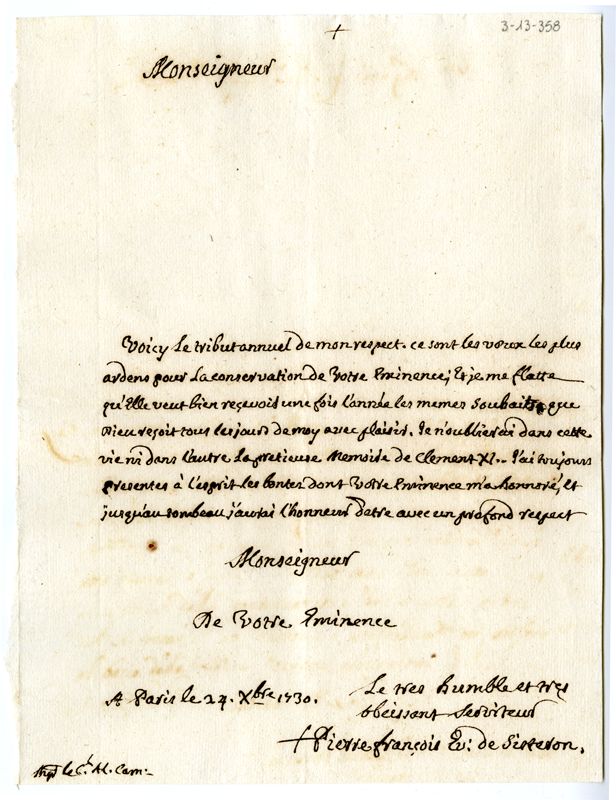 +
3-13-358
Monseigneur
Voicy Le tribut annuel de mon respect. ce sont les vœux les plus
ardens pour La conservation de Votre Eminence; Et je me flatte
qu'Elle veut bien reçevoir une fois l'année les memes Souhaits que
Dieu reçoit tous les jours de moy avec plaisir. Je n'oublierai dans cette
vie ni dans l'autre La pretieuse Memoire de Clement XI.. J'ai toujours
presentes à l'esprit les bontez dont Votre Eminence m'a honnoré, Et
jusqu'au tombeau j'aurai l'honneur d'etre avec un profond respect
Monseigneur
De Votre Eminence
A Paris le 24. Xbre 1730.
Le tres humble et tres
obeissant Serviteur
+ Pierre françois Ev: de Sisteron.
le C. Al. Cam: